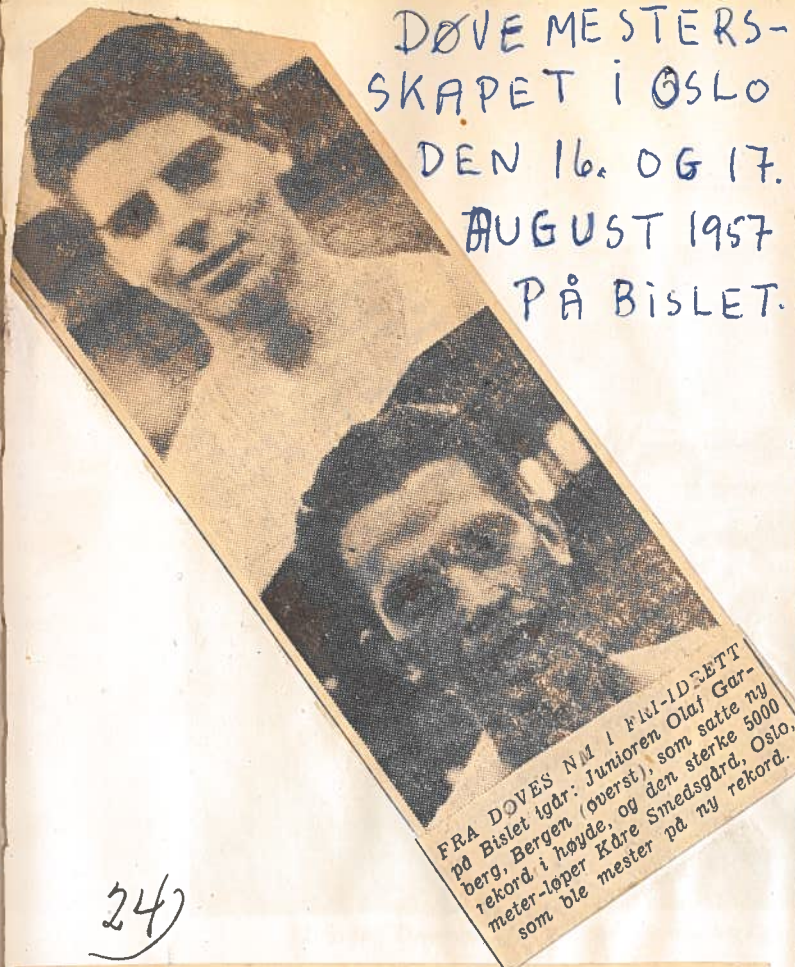 DØVEMESTERS-
SKAPET I OSLO
DEN 16. OG 17.
AUGUST 1957
PÅ BISLET.
FRA DØVES NM I FRI-IDRETT
på Bislet igår: Junioren Olaf Gar-
berg, Bergen (øverst), som satte ny
rekord i høyde, og den sterke 5000
meter-løper Kåre Smedsgård, Oslo,
som ble mester på ny rekord.
24)